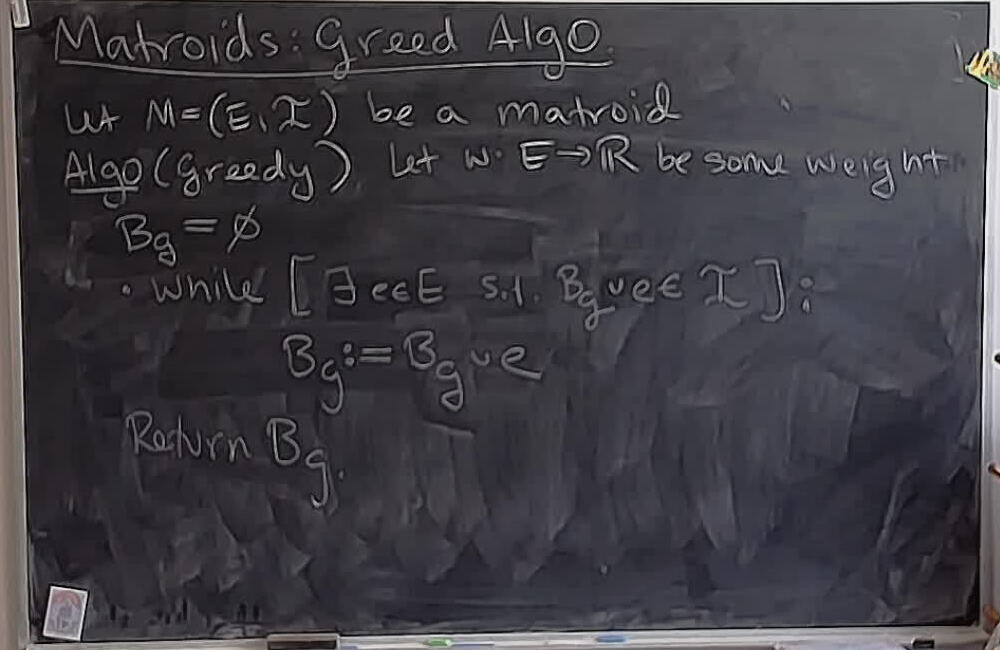 Matroids: Greed Algo.
Let M=(E,I) be a matroid
Algo (Greedy) Let w: E→ℝ be some weight
Bg = ∅
• While [∃ e∈E s.t. Bg ∪ e ∈ I]:
Bg := Bg ∪ e
Return Bg.